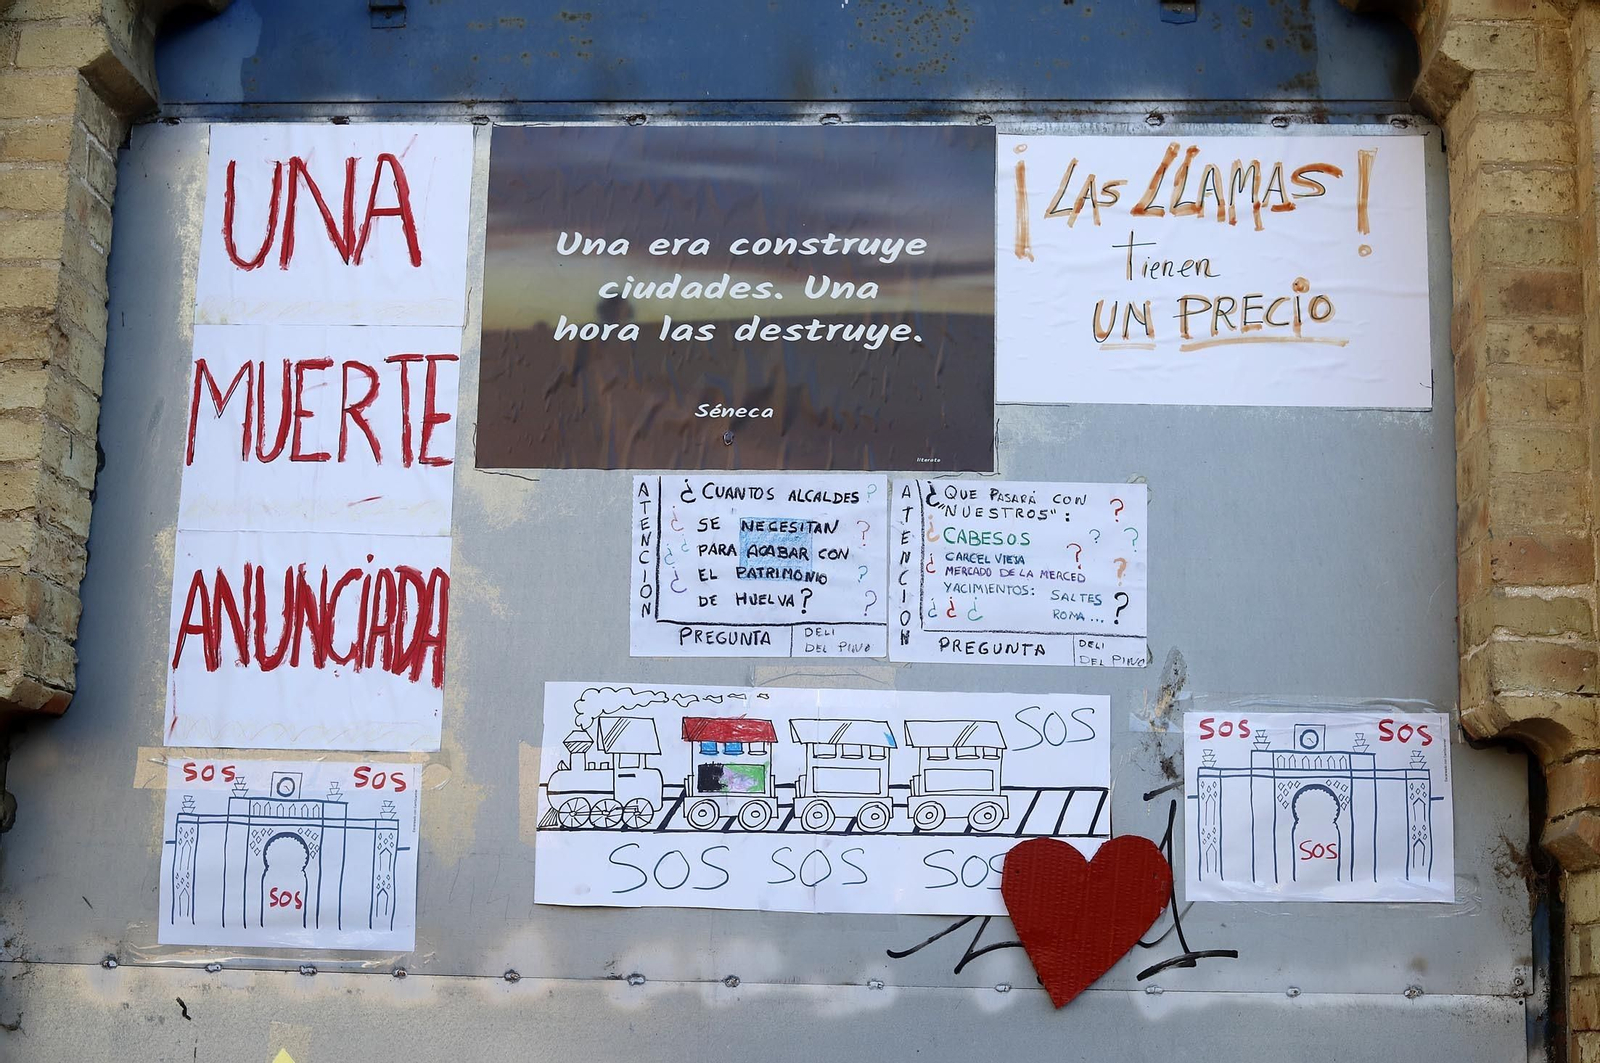 UNA
MUERTE
ANUNCIADA
Una era construye
ciudades. Una
hora las destruye.
Séneca
literato
¡LAS LLAMAS!
Tienen
UN PRECIO
ATENCION
¿CUANTOS ALCALDES?
¿SE NECESITAN?
¿PARA ACABAR CON
¿EL PATRIMONIO?
DE HUELVA??
PREGUNTA
DELI
DEL PINO
ATENCION
¿QUE PASARÁ CON?
"NUESTROS":
¿CABESOS??
¿CARCEL VIEJA?
MERCADO DE LA MERCED?
YACIMIENTOS: SALTES?
¿¿¿ ROMA...
PREGUNTA
DELI
DEL PINO
SOS
SOS SOS SOS
SOS SOS
SOS
SOS SOS
SOS